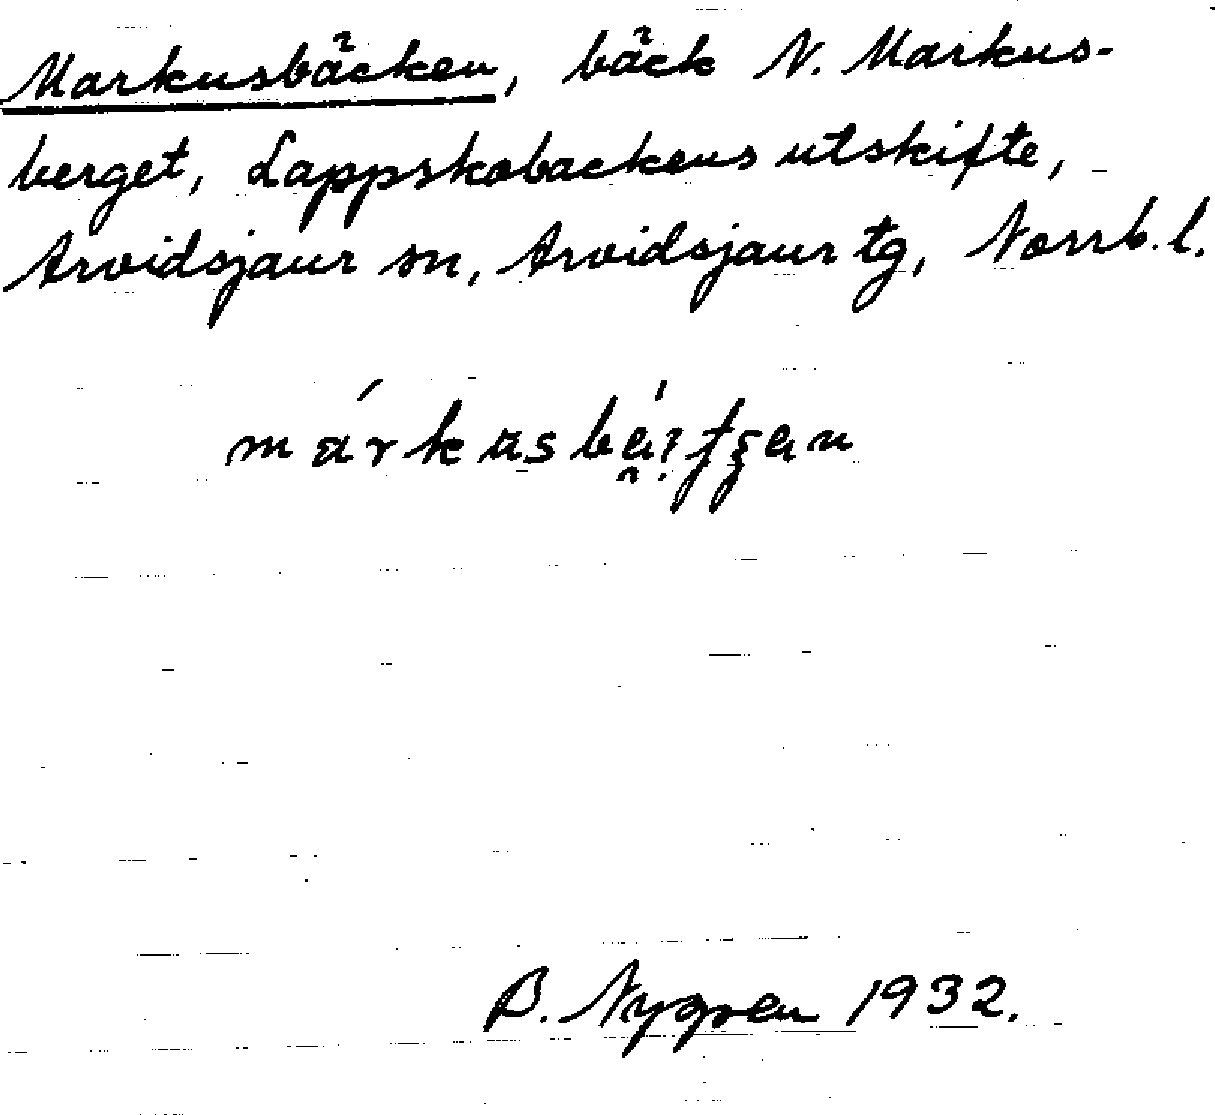 Markusbäcken, bäck N. Markus-
berget, Lappskobackens utskifte,
Arvidsjaur sn, Arvidsjaur tg, Norrb. l.
B. Nygren 1932.